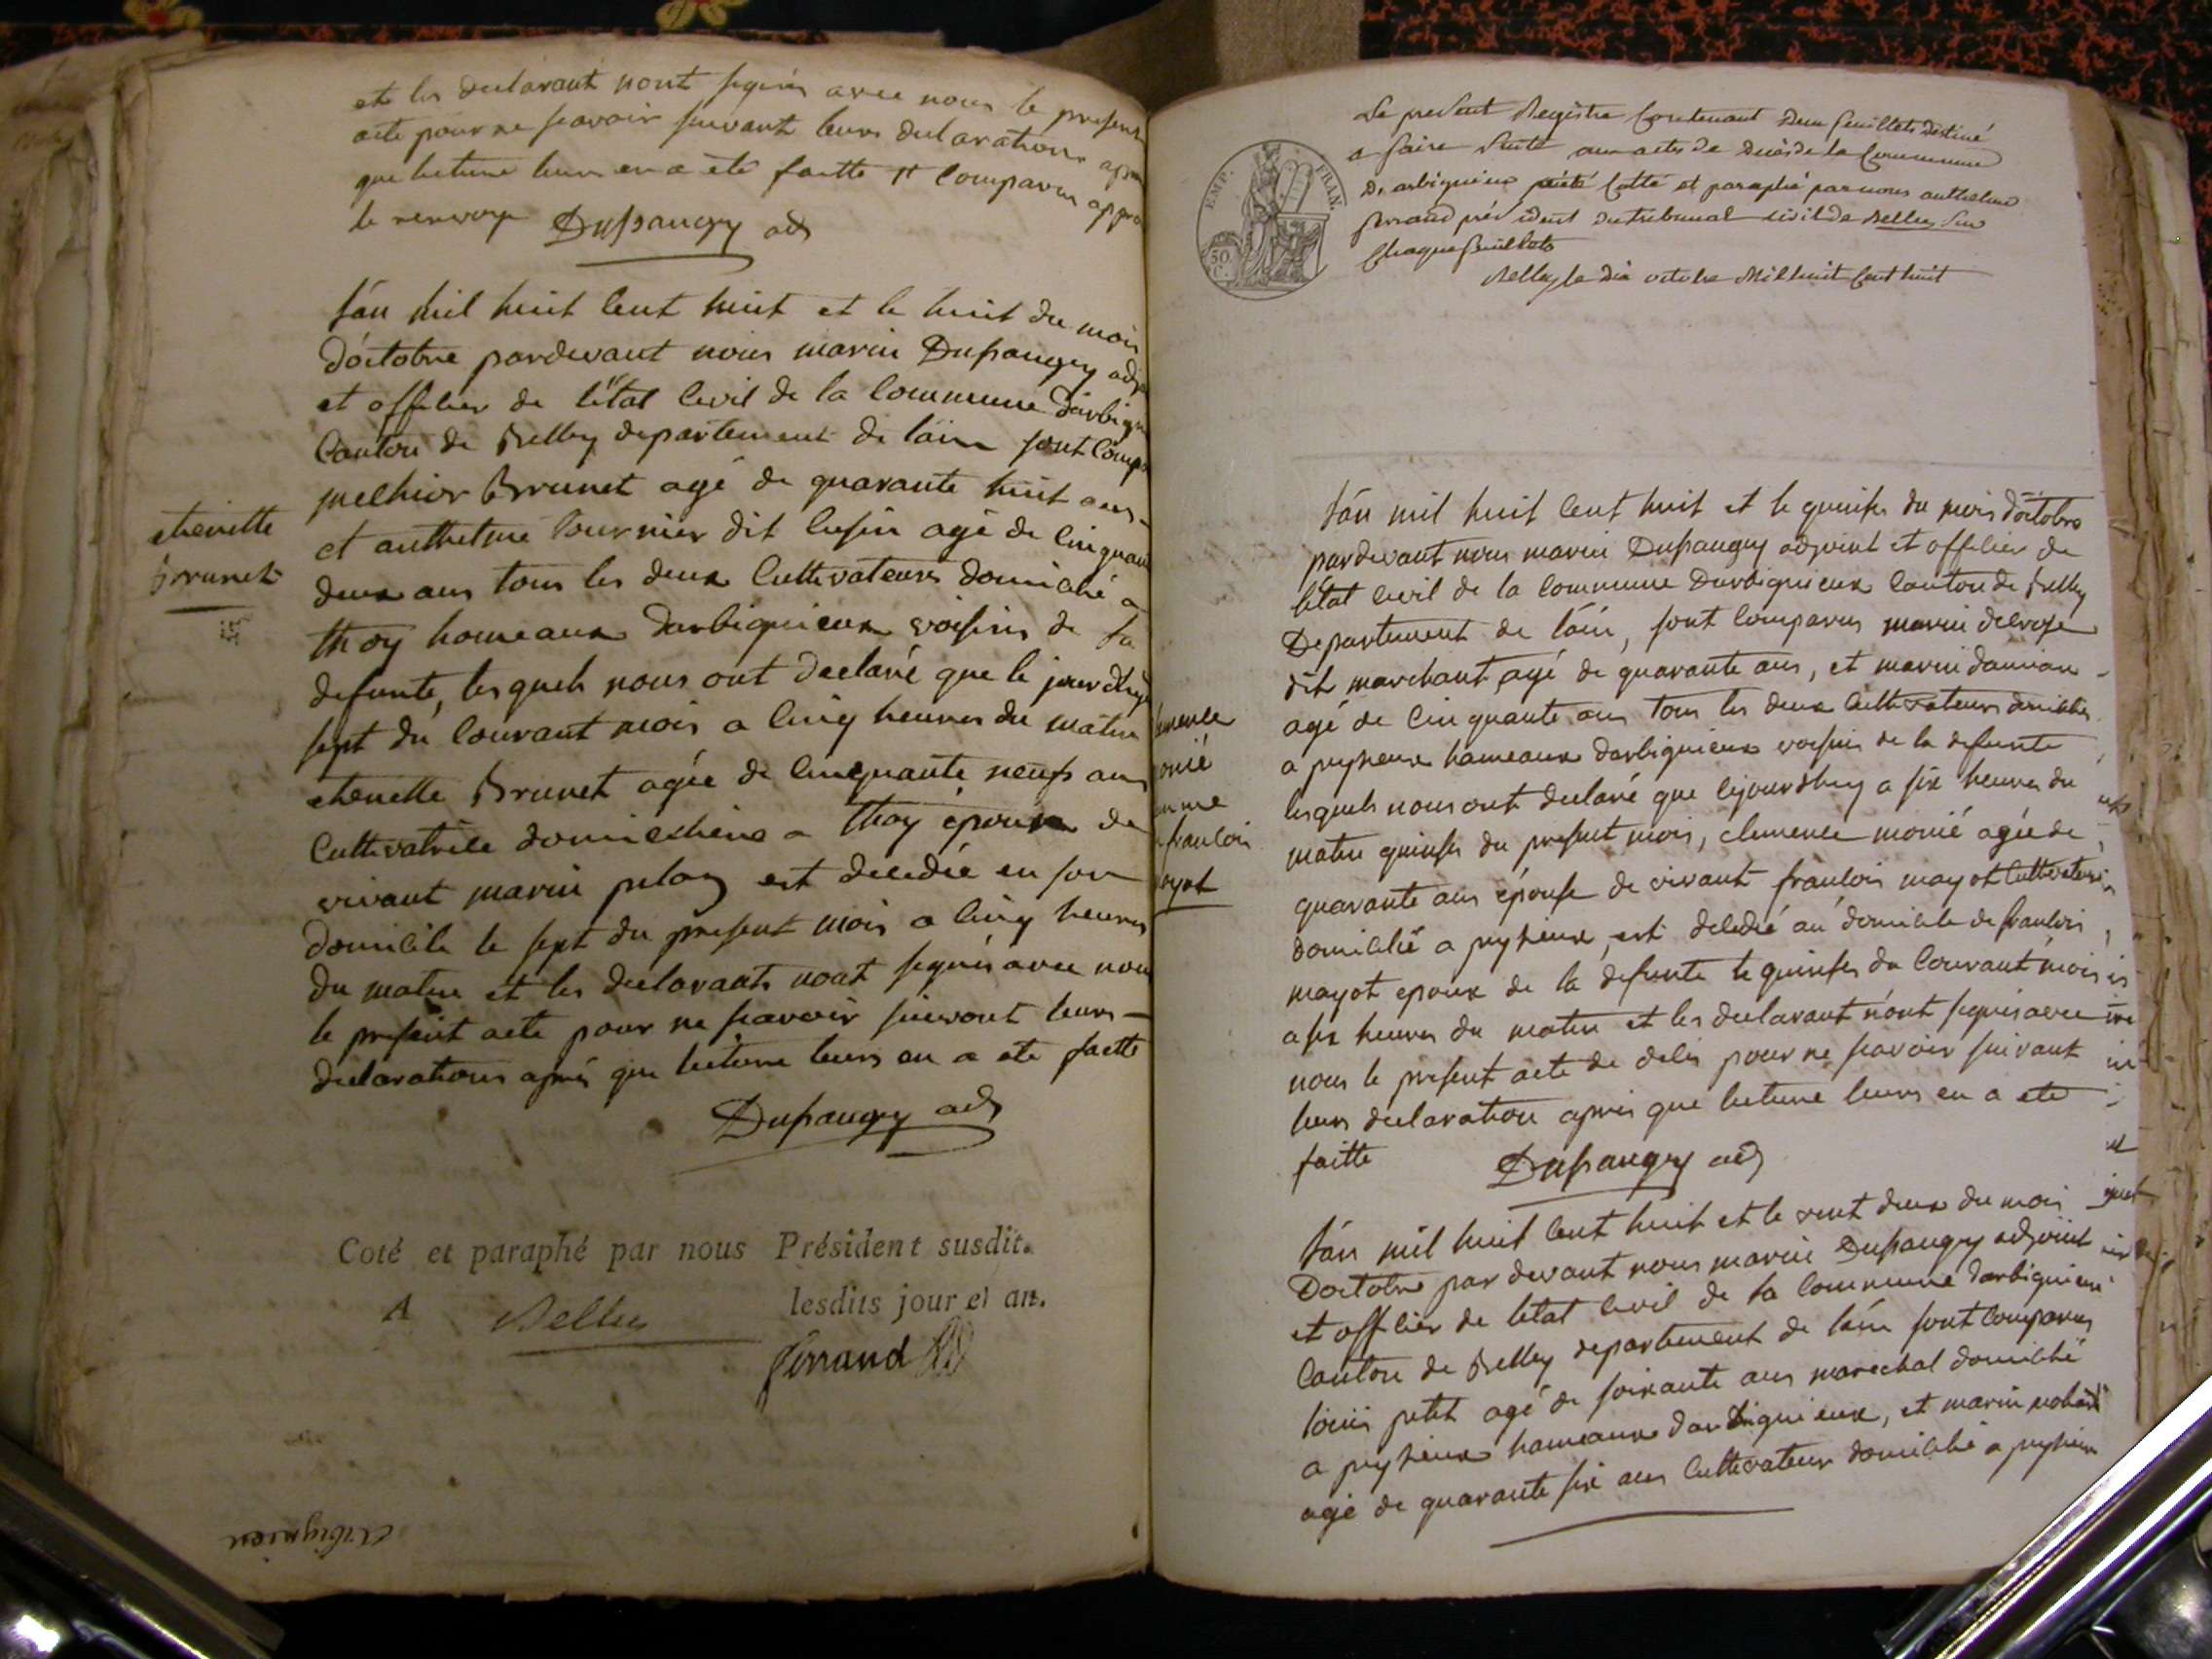 et les declarant nont signés avec nous le present
acte pour ne scavoir suivant leurs declarations apres
que lecture leurs en a été faitte # comparu appro
le renvoye Dupraugey adj
étienette
Brunet
l'an mil huit cent huit et le huit du mois
d'octobre pardevant nous marin Dupraugey adj
et officier de l'état civil de la commune d'arbign
canton de Belley departement de l'ain sont comp
melkior Brunet agé de quarante huit ans
et anthelme tournier dit cusin agé de cinquan
deux ans tous les deux cultivateurs domicilié a
thoy hameaux darbignieux voisins de la
defunte, lesquels nous ont declaré que le jour dhuy
sept du courant mois a cinq heures du matin
etienette Brunet agée de cinquante neufs ans
cultivatrice a thoy épouse de
vivant marin pelay est decedée en son
domicile le sept du present mois a cinq heures
du matin et les declarants nont signés avec nous
le present acte pour ne scavoir suivant leurs
declarations aprés que lecture leurs en a eté faitte
Dupraugey adj
Coté et paraphé par nous Président susdit.
A Belley lesdits jour et an.
Ferrand
Arbignieu
EMP. FRAN.
50
C.
Le present Registre contenant deux feuillets destiné
a faire suite aux actes de décès de la commune
D'arbignieux a été cotté et paraphé par nous anthelme
ferrand président du tribunal civil de Belley sur
chaque feuillets
Belley le dix octobre mil huit cent huit
mence
monié
mme
francois
mayot
l'an mil huit cent huit et le quinse du mois d'octobre
pardevant nous marin Dupraugey adjoint et officier de
l'état civil de la commune Darbignieux canton de Belley
Departement de l'ain, sont comparus marin
dit marchant agé de quarante ans, et marin damian
agé de cinquante ans tous les deux cultivateurs domiciliés
a peyzieux hameaux darbignieux voisins de la defunte
lesquels nous ont declaré que cejourdhuy a six heures du
matin quinses du present mois, clemence monié agée de
quarante ans épouse de vivant francois mayot cultivateur
domicilié a peyzieux, est decedié au domicile de francois
mayot epoux de la defunte le quinses du courant mois
a six heures du matin et les declarant n'ont signés avec
nous le present acte de decés pour ne scavoir suivant
leurs declaration aprés que lecture leurs en a eté
faitte Dupraugey adj
l'an mil huit cent huit et le vent deux du mois
Doctobre par devant nous marin Dupraugey adjoint
et officier de l'etat civil de la commune darbignieux
canton de Belley departement de l'ain sont comparus
louis petit agé de soixante ans marechal domicilié
a peyzieux hameaux darbignieux, et marin
agé de quarante six ans cultivateur domicilié a peyzieux